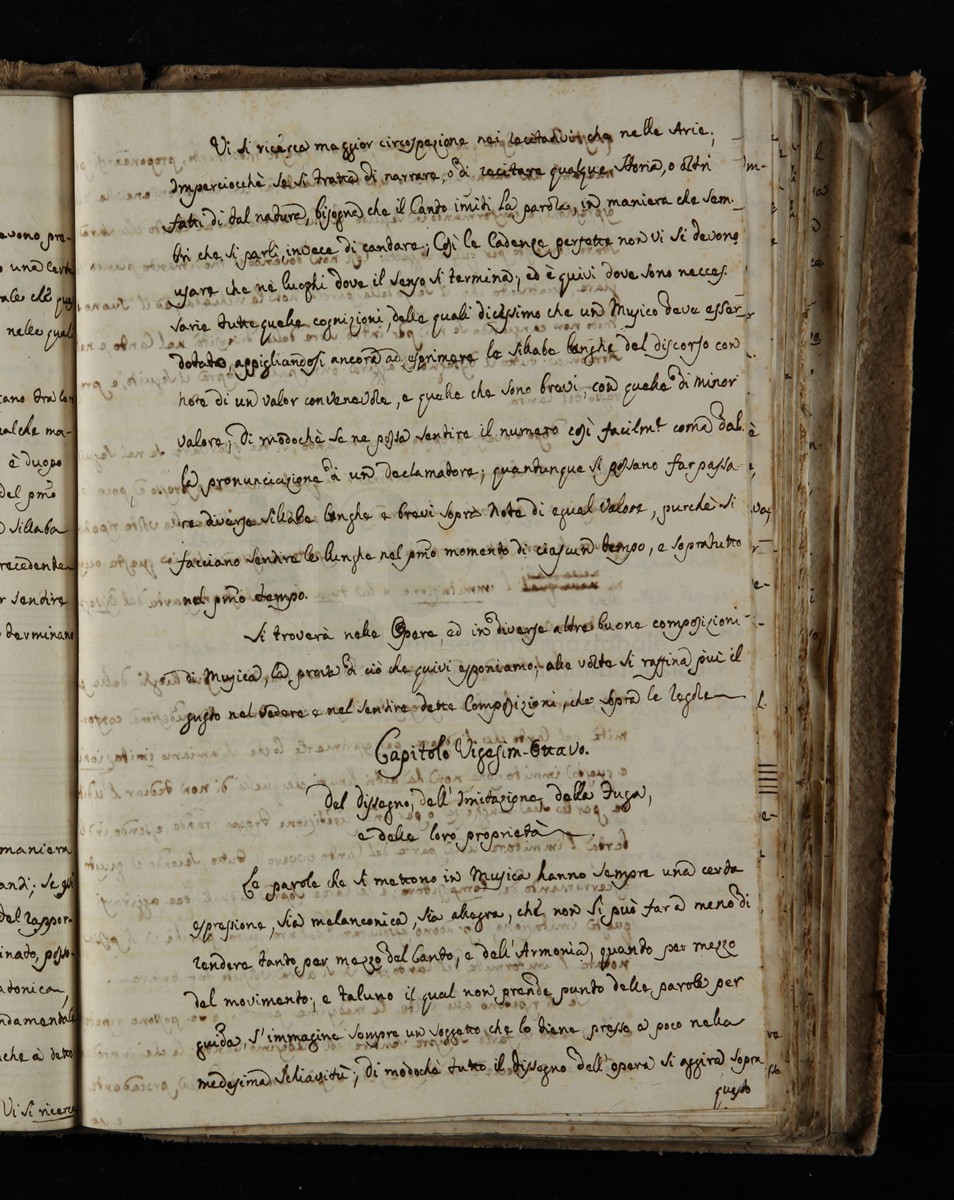 avono pre-
o una certa
nelle quali
è duopo
del pmo
sillaba
recedente
r sendire
determinano
maniera
andi; se gli
del rappor-
inato, posto-
atonica,
ndamentale
che a detto
Vi si ricerca
Vi si ricerca maggior circospezione nei recitativi che nelle Arie;
Imperciocchè se si tratta di narrare, o di recitare qualque Storia, o altri
fatti di tal natura, bisogna che il Canto imiti la parola, in maniera che sem-
bri che si parli, invece di cantare; Così le Cadenze perfette non vi si devono
usare che ne luoghi dove il senso si termina; ed è quivi dove sono necces-
sarie tutte quelle cognizioni, delle quali dicessimo che un Musico deve esser
dotato, appigliandosi ancora ad esprimere le sillabe lunghe del discorso con
note di un valor convenevole, e quelle che sono brevi, con quelle di minor
valore; di modochè se ne possa sentire il numero così facilmt come dal-
la pronunciazione di un declamatore; quantunque si possano far passa-
re diverse sillabe lunghe e brevi sopra Note di egual valore, purchè si
facciano sentire le lunghe nel pmo momento di ciascun tempo, e sopratutto
nel pmo tempo.
Si troverà nelle Opere ed in diverse altre buone composizioni
di Musica, la prova di ciò che quivi esponiamo; alle volte si raffina più il
gusto nel vedere e nel sentire dette Composizioni, che sopra le regole
Capitolo Vigesim-Ottavo.
Del dissegno, dell'Imitazione, della Fuga,
e delle loro proprietà.
Le parole che si mettono in Musica hanno sempre una certa
espressione, sia malanconica, sia allegra, che non si può far a meno di
rendere tanto per mezzo del Canto, e dell'Armonia, quando per mezzo
del movimento; e taluno il qual non prende punto delle parole per
guida, s'immagine sempre un soggetto che lo tiene presso a poco nella
medesima schiavitù; di modochè tutto il dissegno dell'opera si aggira sopra
questo